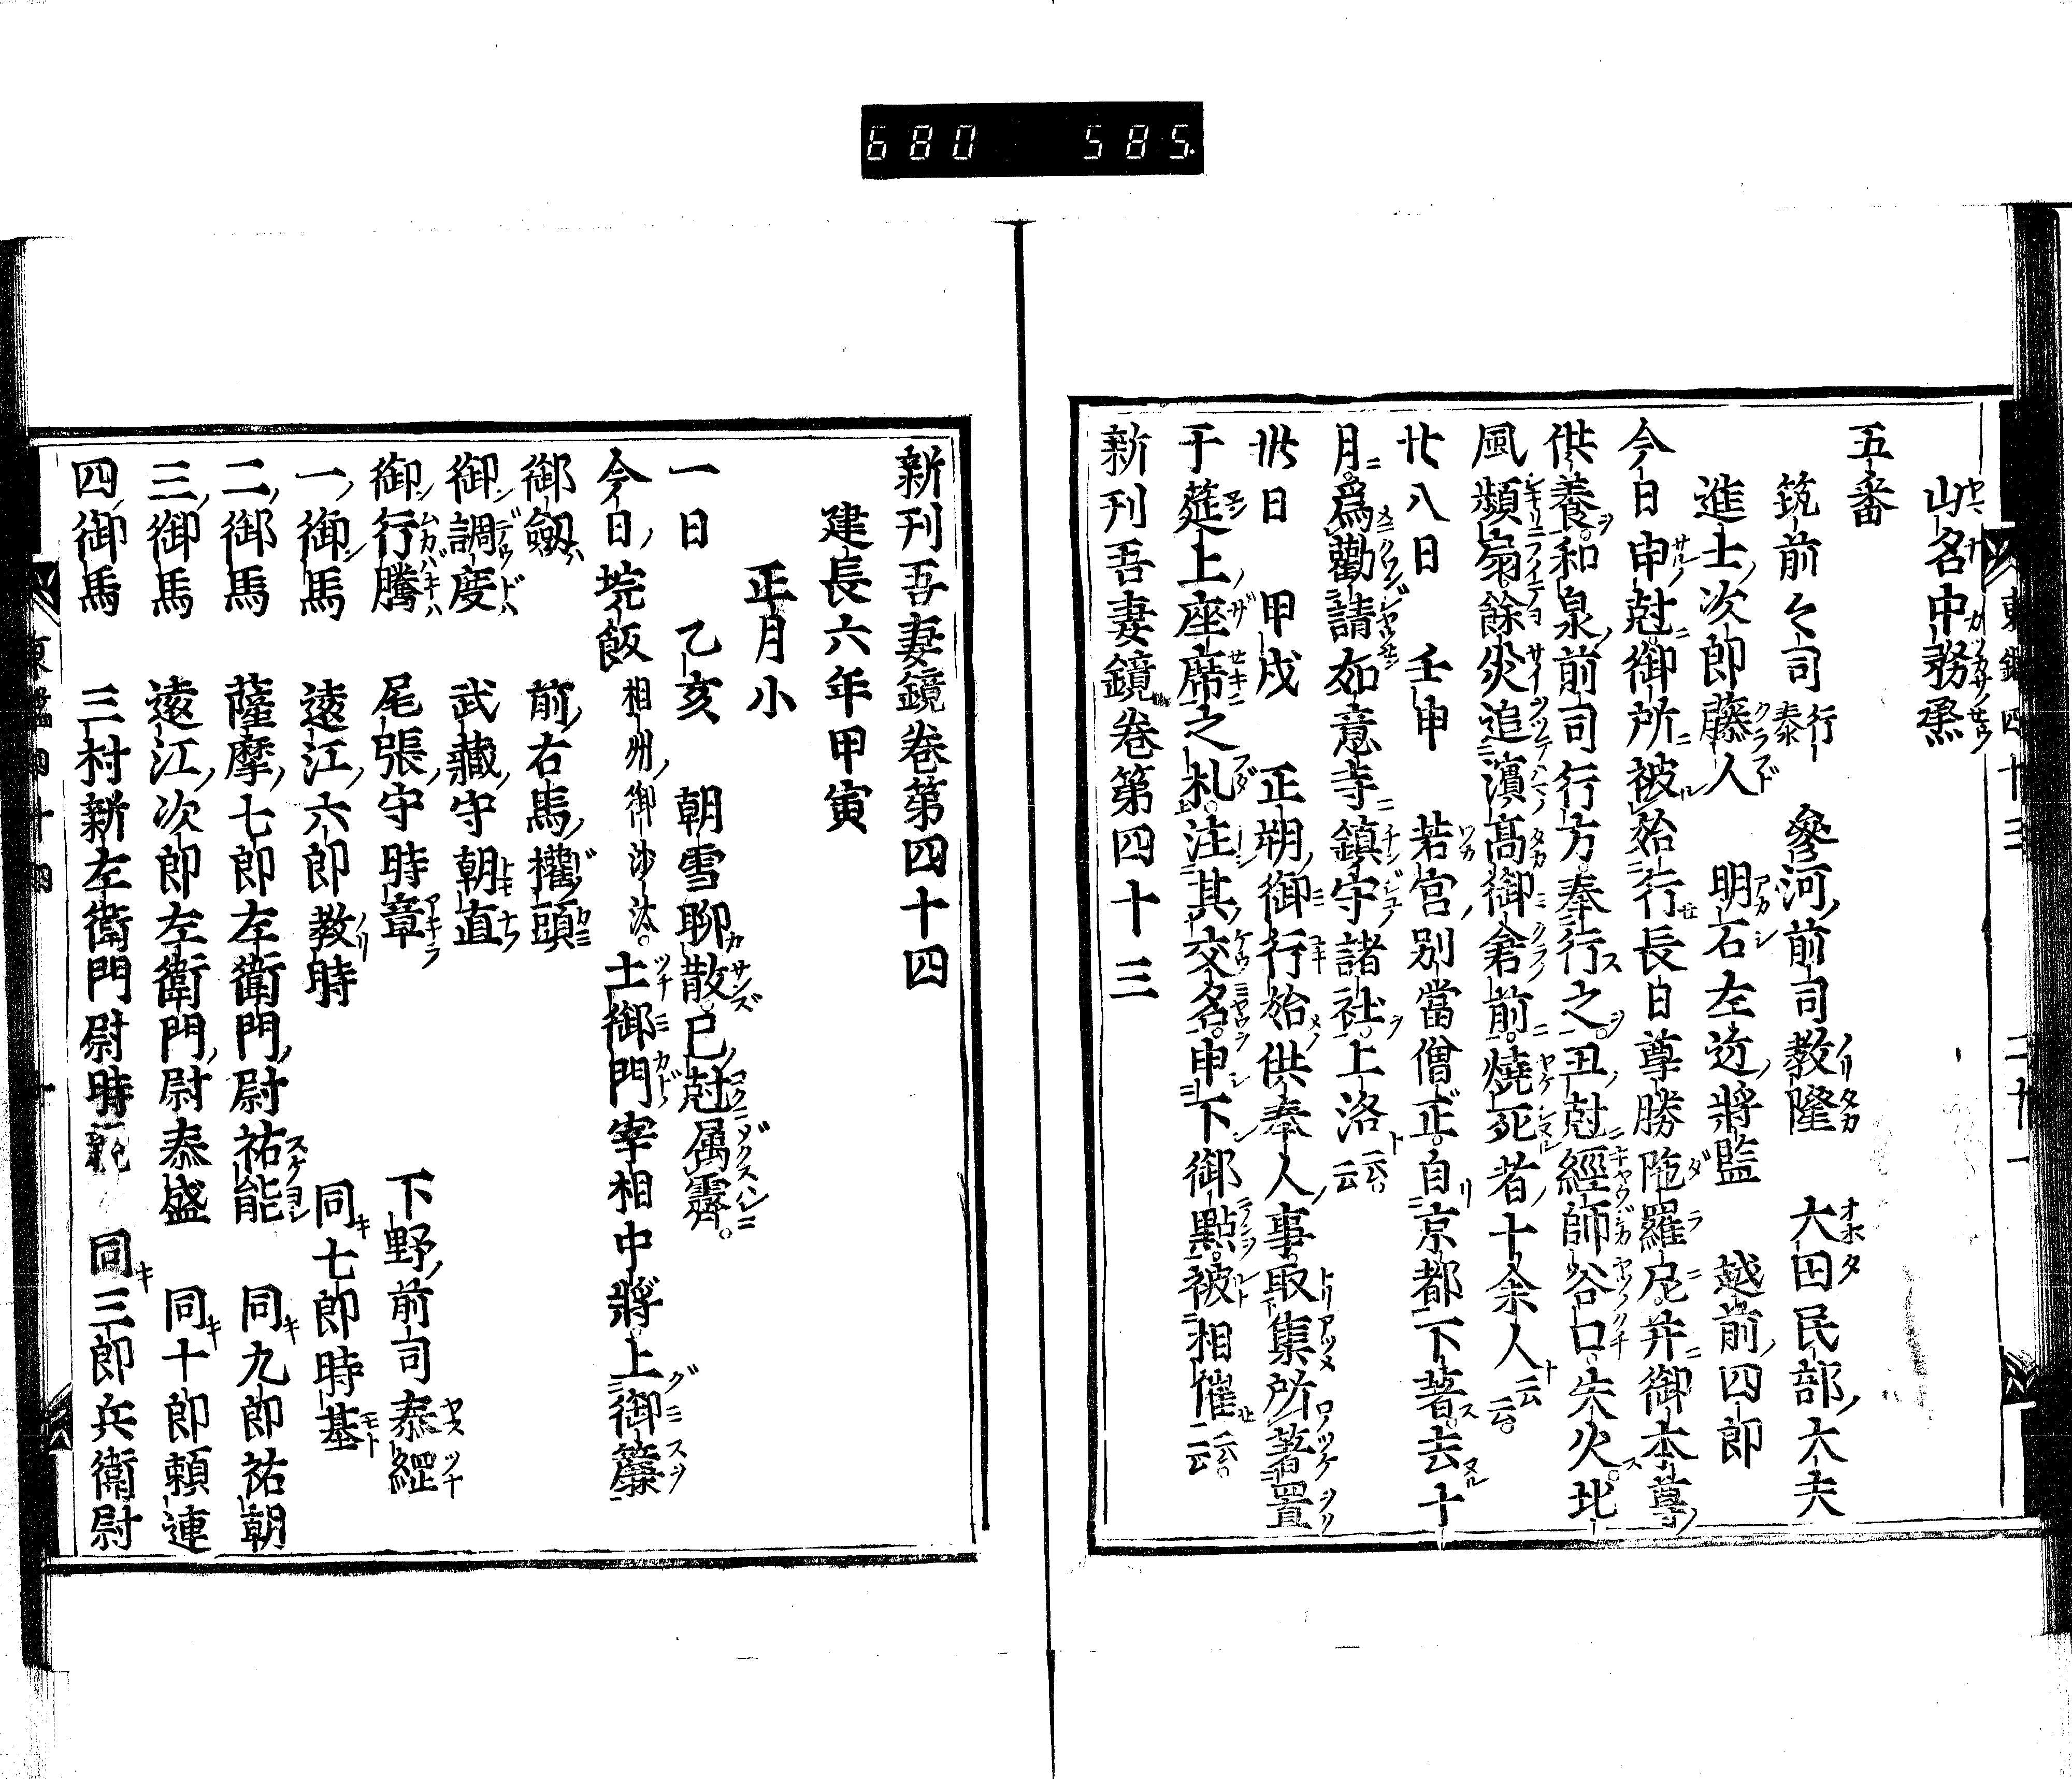 680 585.
山名中務丞
五番
筑前々司行泰 參河前司教隆 大田民部大夫
進士次郎藤人 明石左近將監 越前四郎
今日申尅御所被始行長日尊勝陁羅尼并御本尊
供養和泉前司行方奉行之丑尅經師谷口失火北
風頻扇餘炎追濱髙御倉前燒死者十余人云云
廿八日 壬申 若宮別當僧正自京都下著去十
月爲勸請如意寺鎮守諸社上洛云云
卅日 甲戌 正朔御行始供奉人事取集所著置
于莚上座席之札注其交名申下御點被相催云云
新刊吾妻鏡卷第四十三
新刊吾妻鏡卷第四十四
建長六年甲寅
正月小
一日 乙亥 朝雪聊散巳尅属霽
今日垸飯相州御沙汰土御門宰相中將上御簾
御劔 前右馬權頭
御調度 武藏守朝直
御行騰 尾張守時章 下野前司泰經
一御馬 遠江六郎教時 同七郎時基
二御馬 薩摩七郎左衛門尉祐能 同九郎祐朝
三御馬 遠江次郎左衛門尉泰盛 同十郎頼連
四御馬 三村新左衛門尉時親 同三郎兵衛尉